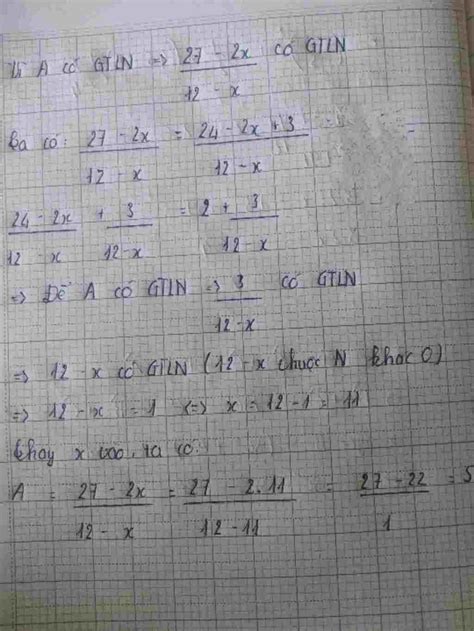 Vì A có GTLN => (27 - 2x)/(12 - x) có GTLN
Ta có: (27 - 2x)/(12 - x) = (24 - 2x + 3)/(12 - x) =
(24 - 2x)/(12 - x) + 3/(12 - x) = 2 + 3/(12 - x)
=> Để A có GTLN => 3/(12 - x) có GTLN
=> 12 - x có GTLN (12 - x thuộc N khác 0)
=> 12 - x = 1 <=> x = 12 - 1 = 11
thay x vào, ta có:
A = (27 - 2x)/(12 - x) = (27 - 2.11)/(12 - 11) = (27 - 22)/1 = 5